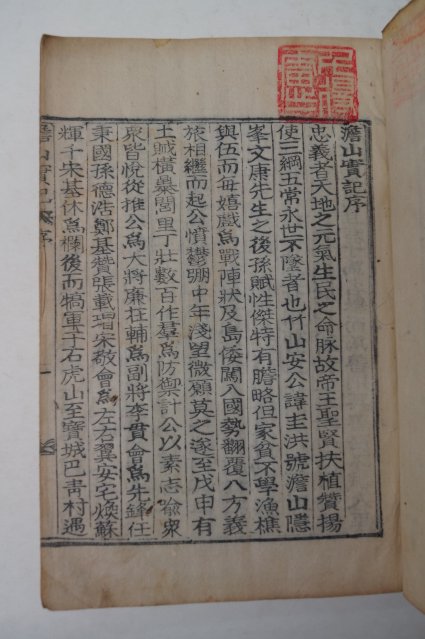 澹山實記序
忠義者天地之元氣生民之命脉故帝王聖賢扶植贊揚
使三綱五常永世不墜者也竹山安公諱圭洪號澹山隱
峯文康先生之後孫賦性傑特有膽略但家貧不學漁樵
與伍而每嬉戲爲戰陣狀及島倭闖入國勢翻覆八方義
旅相繼而起公憤鬱弸中年淺望微願莫之遂至戊申有
土賊橫暴閭里丁壯數百作羣爲防禦計公以素志喩衆
衆皆悅從推公爲大將廉在輔爲副將李貫會爲先鋒任
秉國孫德浩鄭基贊張載瑨宋敬會爲左右翼安宅煥蘇
輝千宋基休爲欄後而犒軍于石虎山至寶城巴靑村遇
澹山實記 序 一